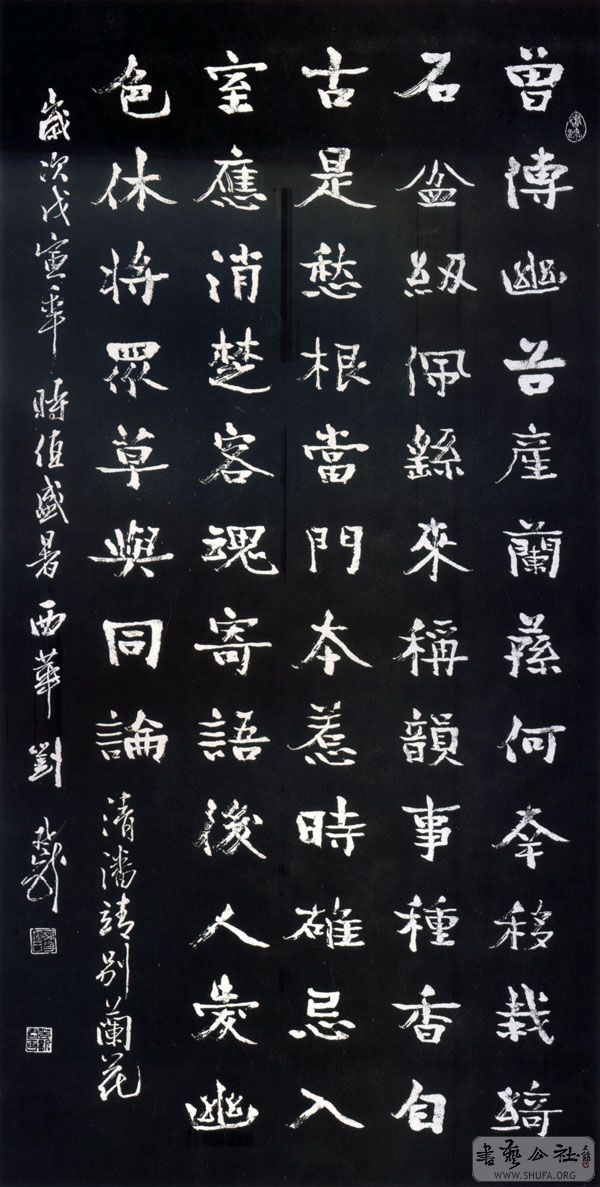 曾傳幽谷產蘭蓀何幸移栽綺
石盆紉佩繇來稱韻事種香自
古是愁根當門本惹時雄忌入
室應消楚客魂寄語後人愛幽
色休將眾草與同論 清潘靖別蘭花
歲次戊寅年時值盛暑西華劉
書藝公社
WWW.SHUFA.ORG